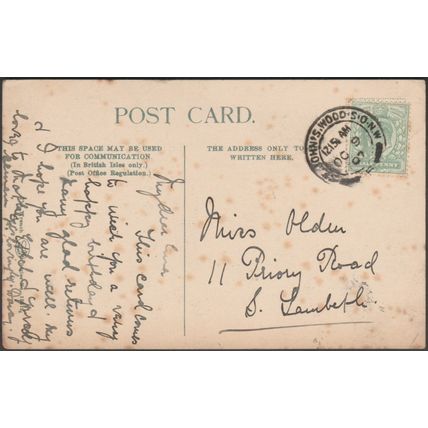 POST CARD.
THIS SPACE MAY BE USED
FOR COMMUNICATION
(In British Isles only.)
(Post Office Regulation.)
THE ADDRESS ONLY TO
WRITTEN HERE.
JOHN'S.WOOD.S.O.N.W
12.15 AM
OC
PENNY
My dear
This card comes
to wish you a very
happy birthday
Many glad returns
& I hope you are well. My
love to
Miss Olden
11 Priory Road
S. Lambeth.